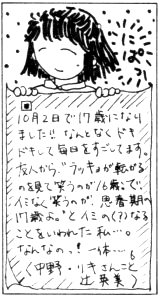 にぱっ
10月2日で17歳になり
ました!! なんとなくドキ
ドキして毎日をすごしてます。
友人から"ラッキョが転がる
のを見て笑うのが16歳で、
イミなく笑うのが、思春期の
17歳よ。"とイミの(?)なる
ことをいわれた私…。
なんなのっ! 一体…。
(中野・リキさんこと
辻英美)